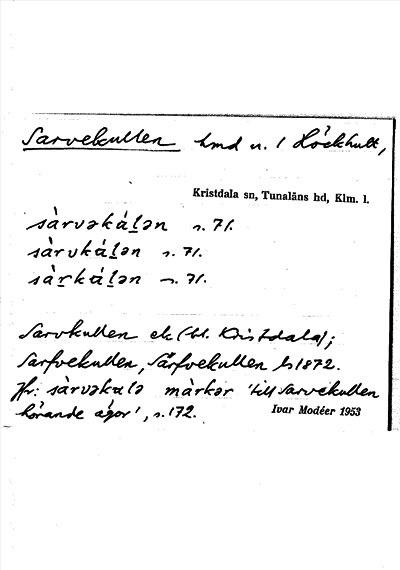 Sarvekullen hmd u. / Höckhult,
Kristdala sn, Tunaläns hd, Klm. l.
sàrvəkáḻən s. 71.
sàrvkáḻən s. 71.
sàṟkáḻən s. 71.
Sarvkullen ek (bl. Kristdala);
Sarfvekullen, Särfvekullen h 1872.
Jfr: sàrvəkulə màrkər 'till Sarvekullen
hörande ägor', s. 172.
Ivar Modéer 1953